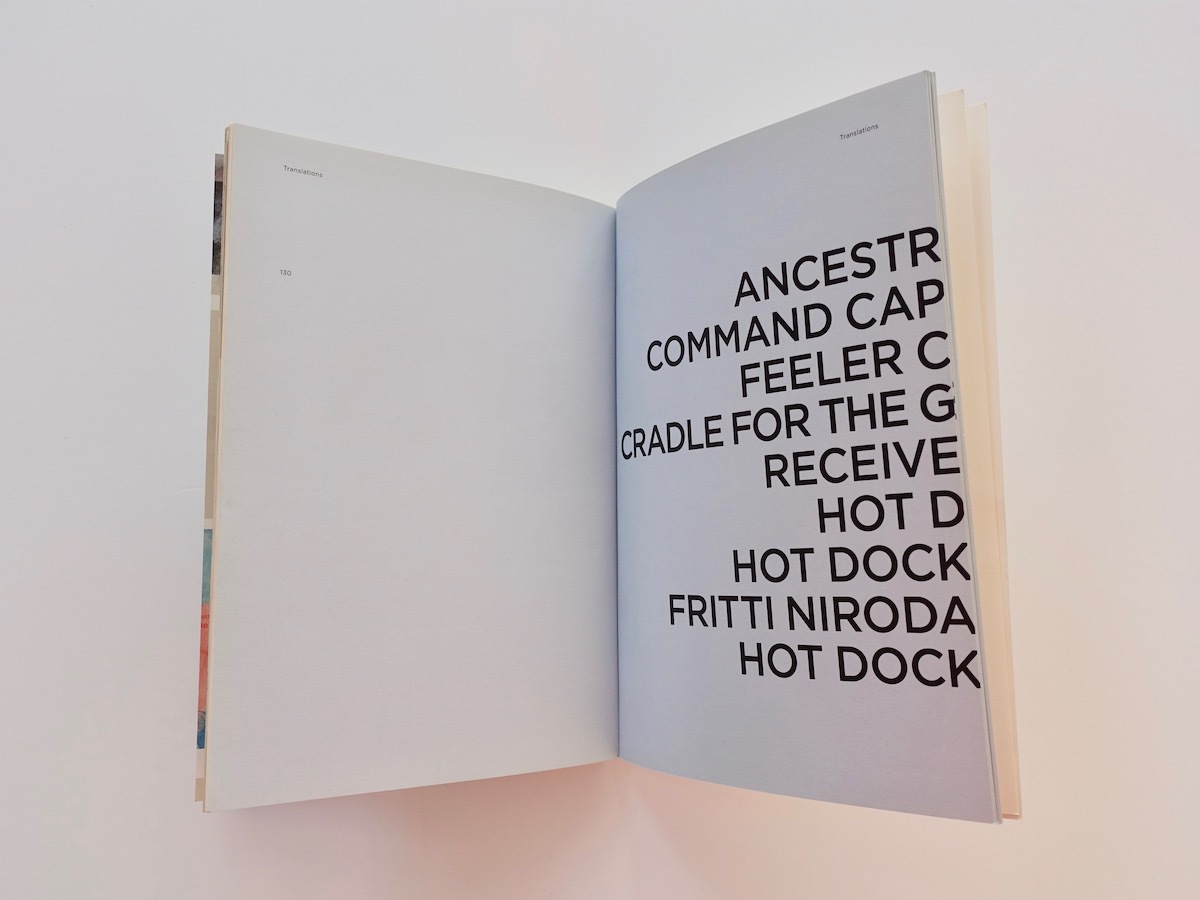 Translations
130
Translations
ANCESTR
COMMAND CAP
FEELER C
CRADLE FOR THE G
RECEIVE
HOT D
HOT DOCK
FRITTI NIRODA
HOT DOCK